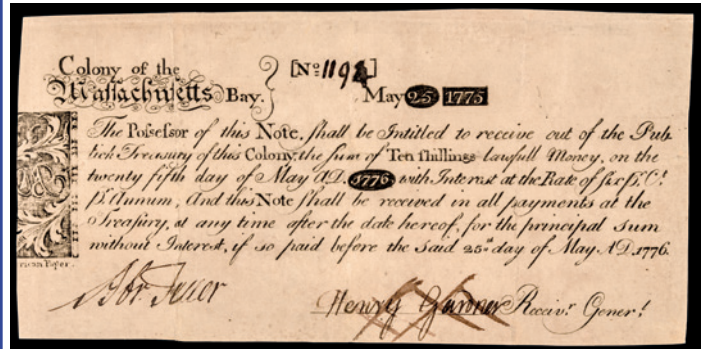 Colony of the
Massachusetts Bay.
[No. 1194]
May 25 1775
The Possessor of this Note, shall be Intitled to receive out of the Pub
lick Treasury of this Colony, the sum of Ten shillings lawfull Money, on the
twenty fifth day of May A.D. 1776 with Interest at the Rate of six pr. Ct.
pr. Annum, And this Note shall be received in all payments at the
Treasury, at any time after the date hereof, for the principal sum
without Interest, if so paid before the said 25th day of May A.D. 1776.
Henry Gardner Receivr. Generl.